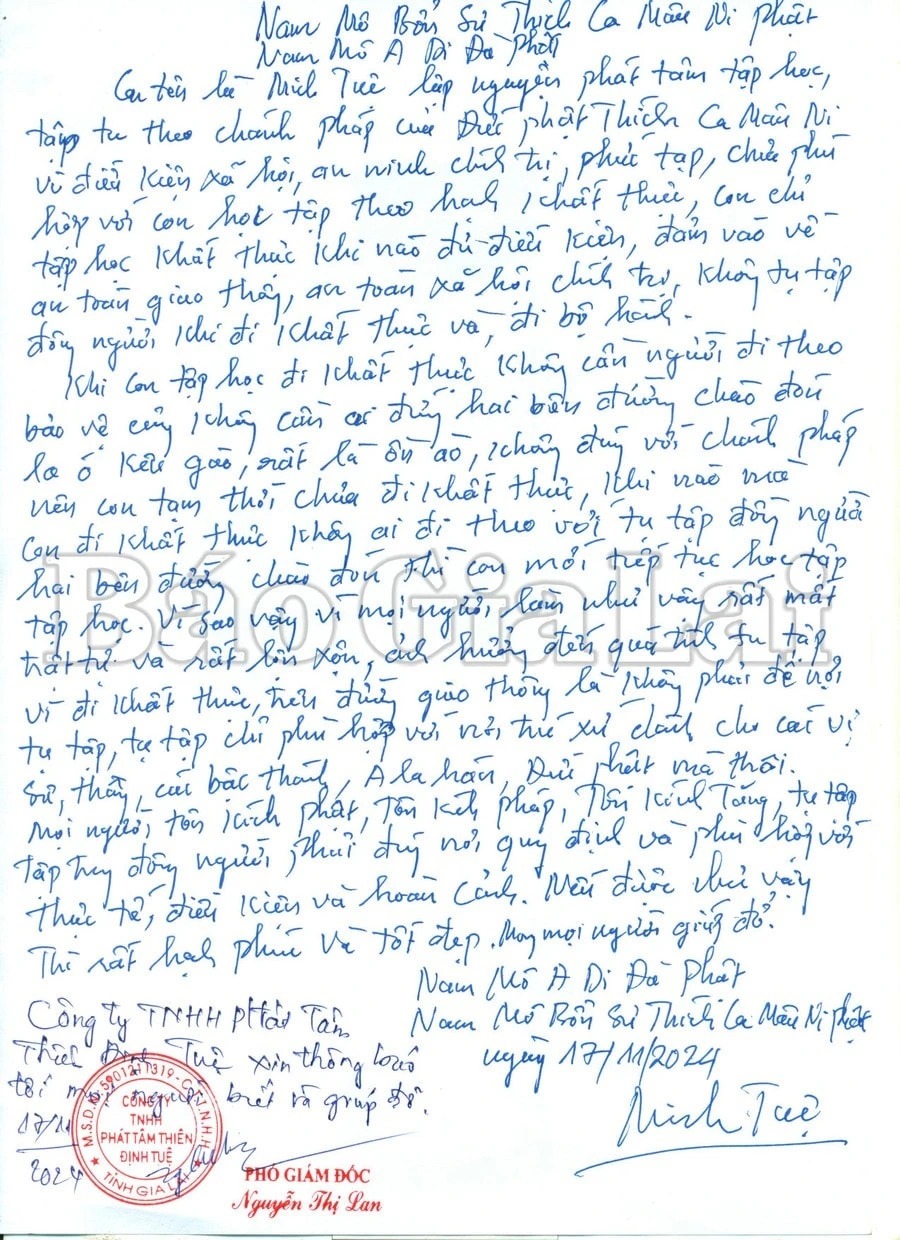 Nam Mô Bổn Sư Thích Ca Mâu Ni phật
Nam Mô A Di Đà phật
Con tên là Minh Tuệ lập nguyện phát tâm tập học,
tập tu theo chánh pháp của Đức phật Thích Ca Mâu Ni
vì điều kiện xã hội, an ninh chính trị, phức tạp, chưa phù
hợp với con học tập theo hạnh khất thực, con chỉ
tập học khất thực khi nào đủ điều kiện, đảm vào về
an toàn giao thông, an toàn xã hội chính trị, không tụ tập
đông người khi đi khất thực và đi bộ hành.
Khi con tập học đi khất thực không cần người đi theo
bảo vệ cũng không cần ai đứng hai bên đường chào đón
la ó kêu gào, rất là ồn ào, không đúng với chánh pháp
nên con tạm thời chưa đi khất thực, khi nào mà
con đi khất thực không ai đi theo với tụ tập đông người
hai bên đường chào đón thì con mới tiếp tục học tập
tập học. Vì sao vậy vì mọi người làm như vậy rất mất
trật tự và rất lộn xộn, ảnh hưởng đến quá trình tu tập
vì đi khất thực, trên đường giao thông là không phải để nơi
tụ tập, tụ tập chỉ phù hợp với nơi trú xứ dành cho các vị
sư, thầy, các bậc thánh, A la hán, Đức phật mà thôi.
Mọi người tôn kính phật, tôn kính pháp, Tôn kính Tăng, tụ tập
tập trung đông người phải đúng nơi quy định và phù hợp với
thực tế, điều kiện và hoàn cảnh. Nếu được như vậy
Thì rất hạnh phúc và tốt đẹp. Mong mọi người giúp đỡ.
Nam Mô A Di Đà phật
Nam Mô Bổn Sư Thích Ca Mâu Ni phật
ngày 17/11/2024
Minh Tuệ
Công ty TNHH phát Tâm
Thiên Định Tuệ xin thông báo
tới mọi người biết và giúp đỡ.
17/11
2024
M.S.D.N: 5901211319 - C.T.T.N.H.H
CÔNG TY
TNHH
PHÁT TÂM THIÊN
ĐỊNH TUỆ
TỈNH GIA LAI
PHÓ GIÁM ĐỐC
Nguyễn Thị Lan
Báo Gia Lai